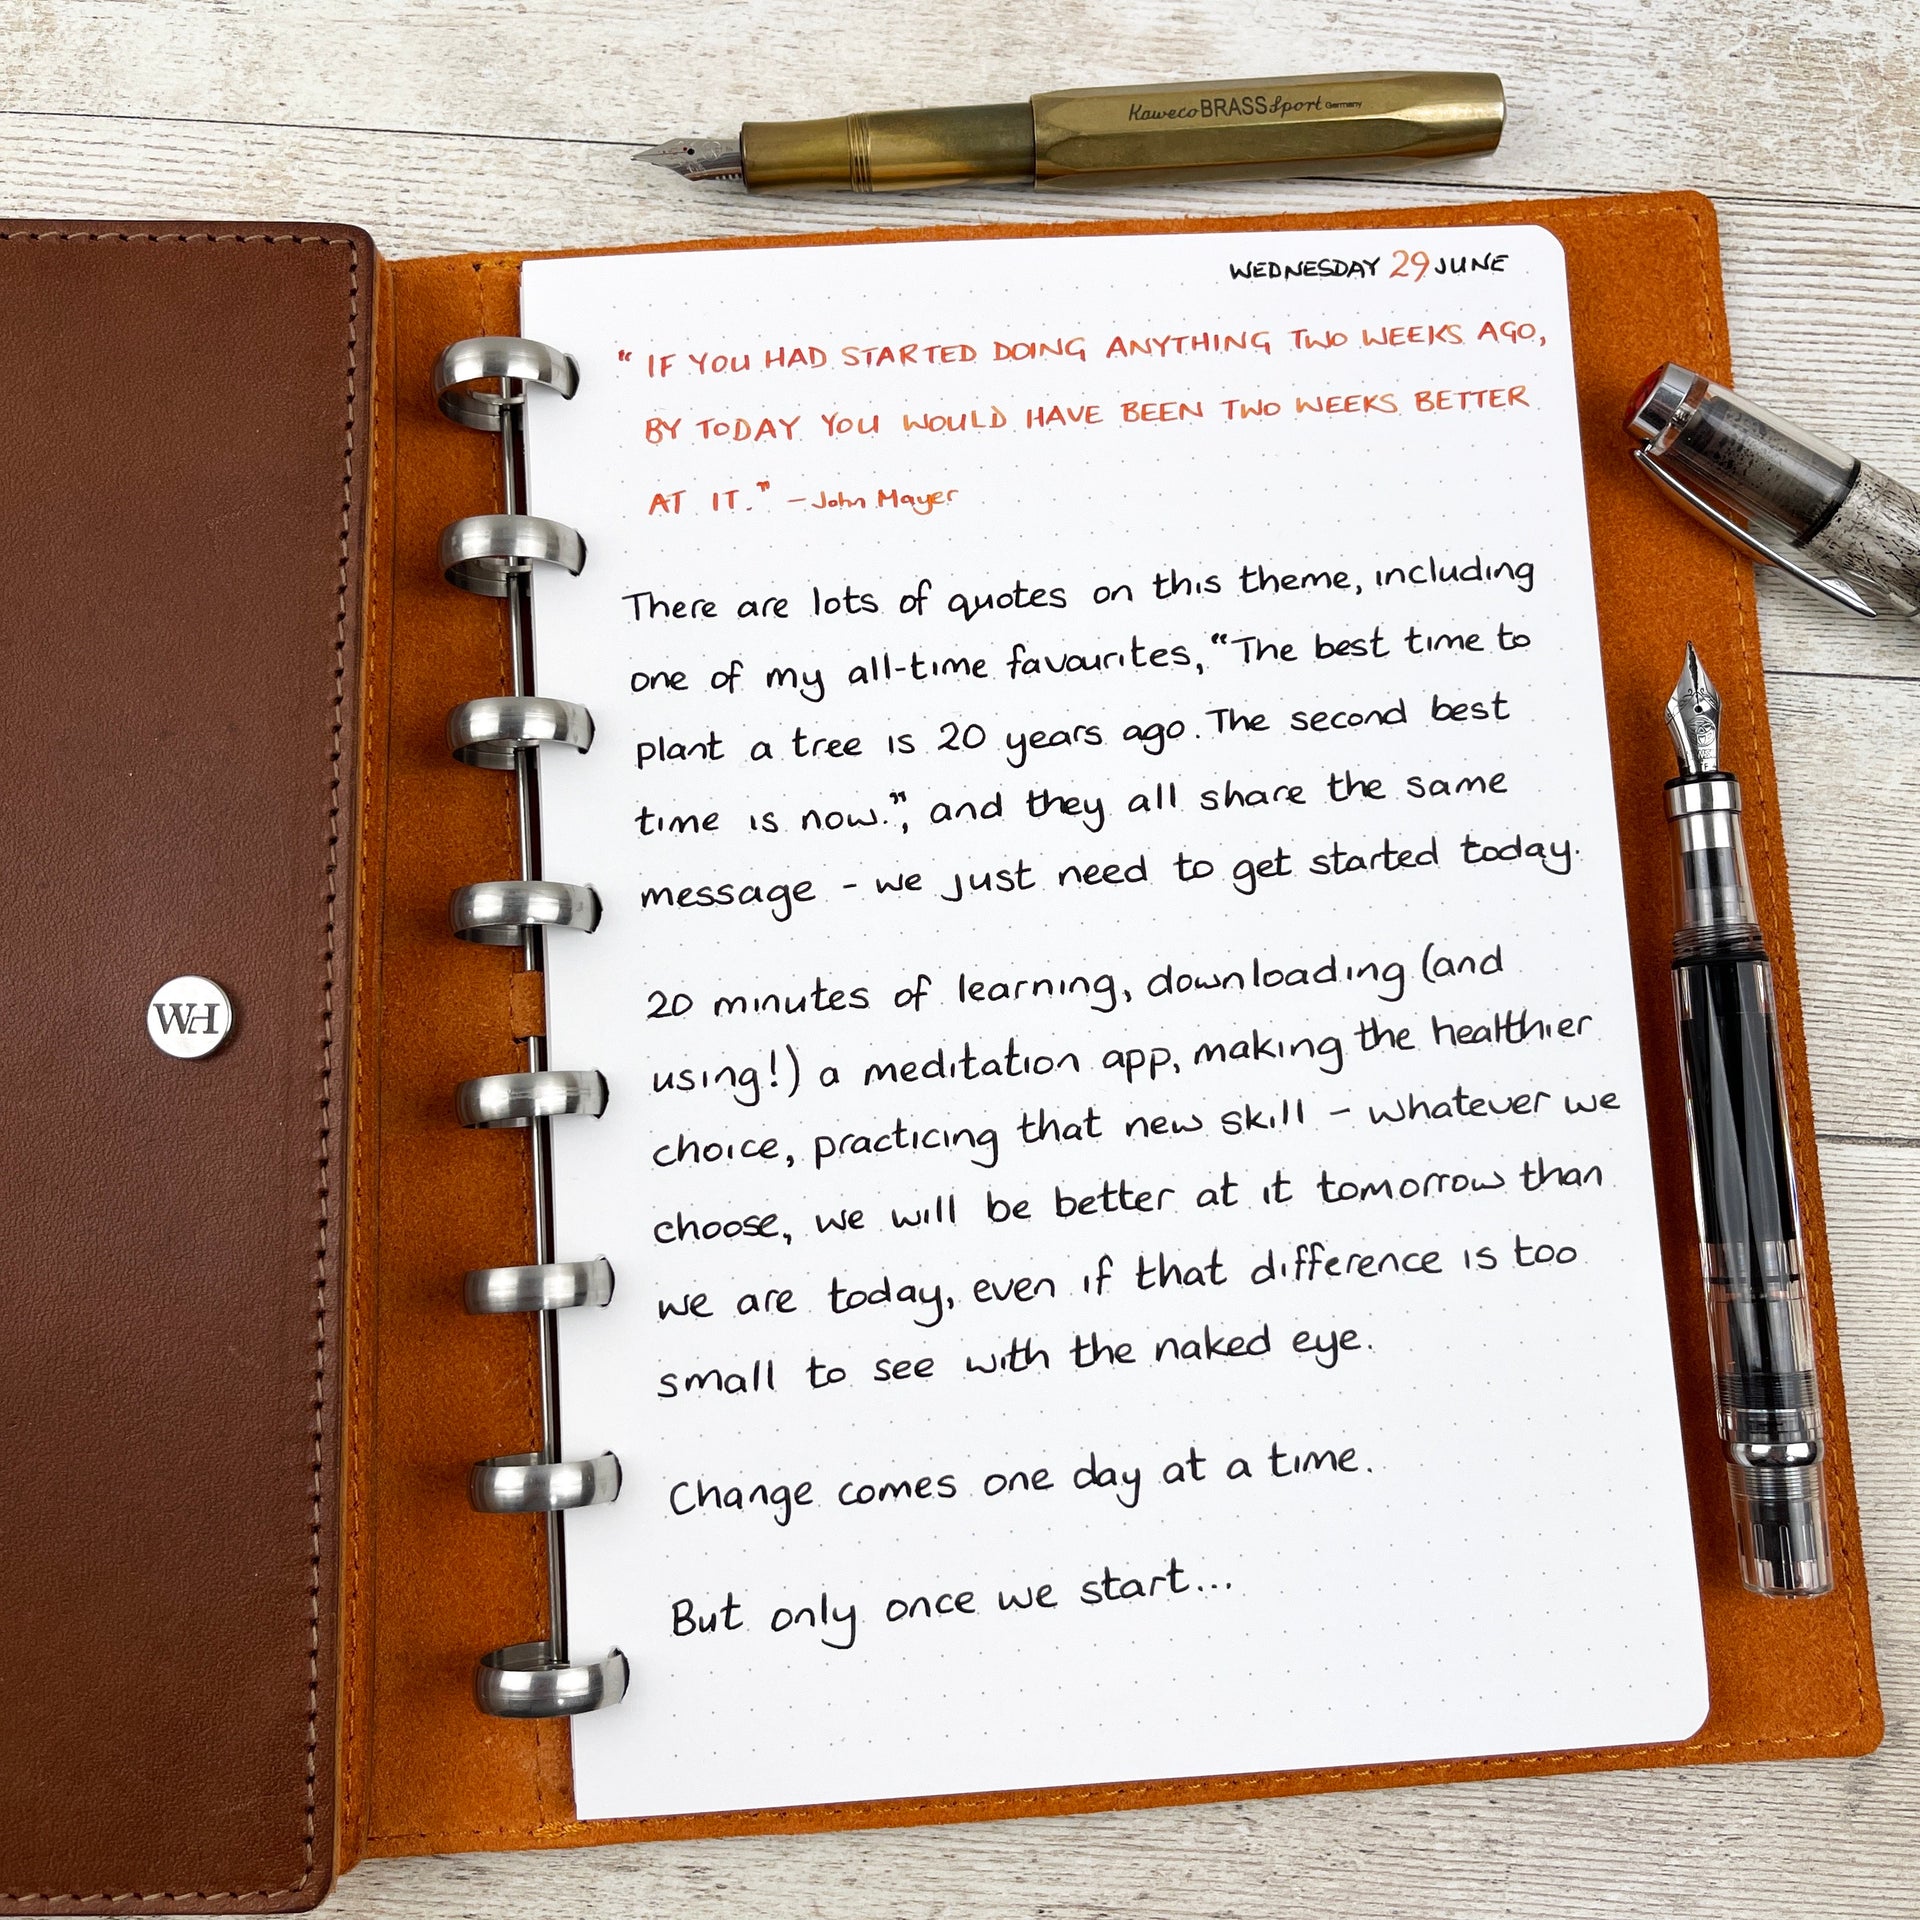 Kaweco BRASS Sport Germany
WEDNESDAY 29 JUNE
“ IF YOU HAD STARTED DOING ANYTHING TWO WEEKS AGO,
BY TODAY YOU WOULD HAVE BEEN TWO WEEKS BETTER
AT IT.” – John Mayer
There are lots of quotes on this theme, including
one of my all-time favourites, “The best time to
plant a tree is 20 years ago. The second best
time is now.”, and they all share the same
message - we just need to get started today.
20 minutes of learning, downloading (and
using!) a meditation app, making the healthier
choice, practicing that new skill - whatever we
choose, we will be better at it tomorrow than
we are today, even if that difference is too
small to see with the naked eye.
Change comes one day at a time.
But only once we start...
WH